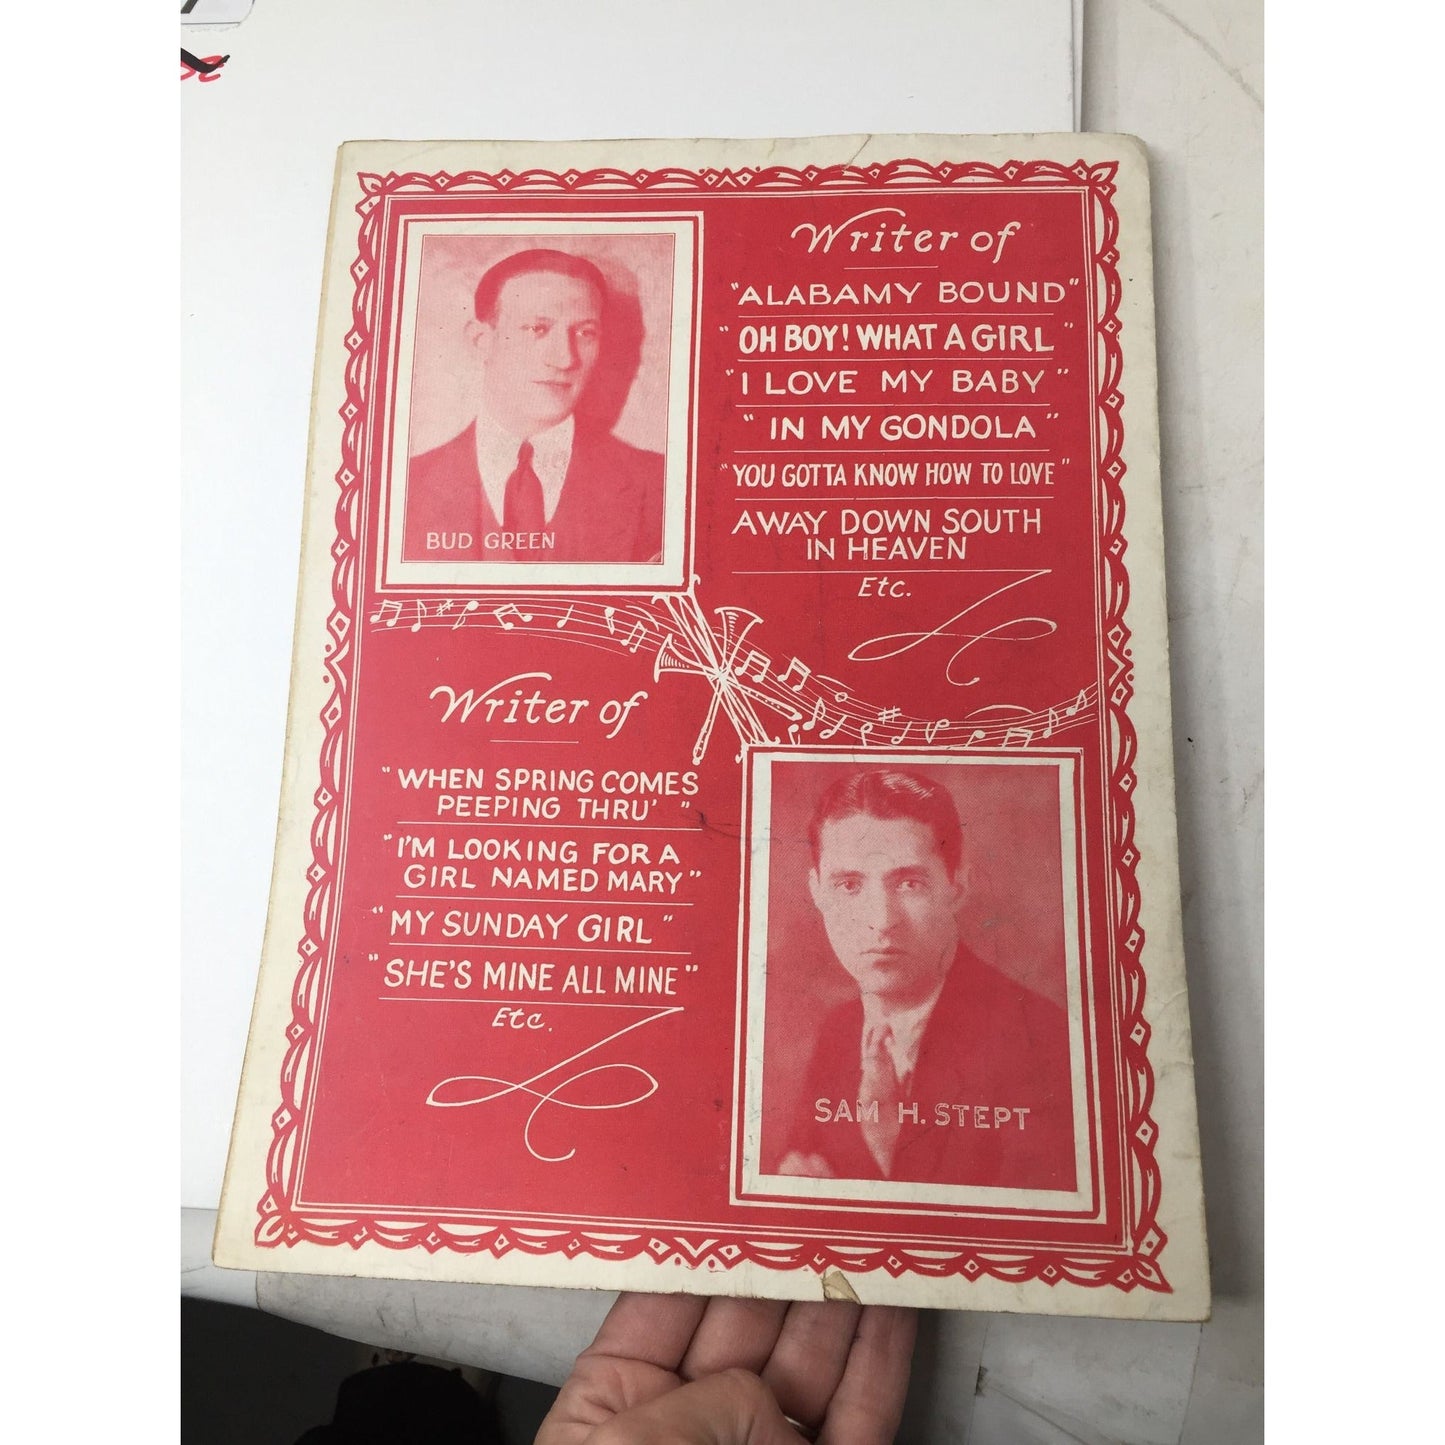 BUD GREEN
Writer of
"ALABAMY BOUND"
"OH BOY! WHAT A GIRL"
"I LOVE MY BABY"
"IN MY GONDOLA"
"YOU GOTTA KNOW HOW TO LOVE"
AWAY DOWN SOUTH
IN HEAVEN
Etc.
Writer of
"WHEN SPRING COMES
PEEPING THRU'"
"I'M LOOKING FOR A
GIRL NAMED MARY"
"MY SUNDAY GIRL"
"SHE'S MINE ALL MINE"
Etc.
SAM H. STEPT